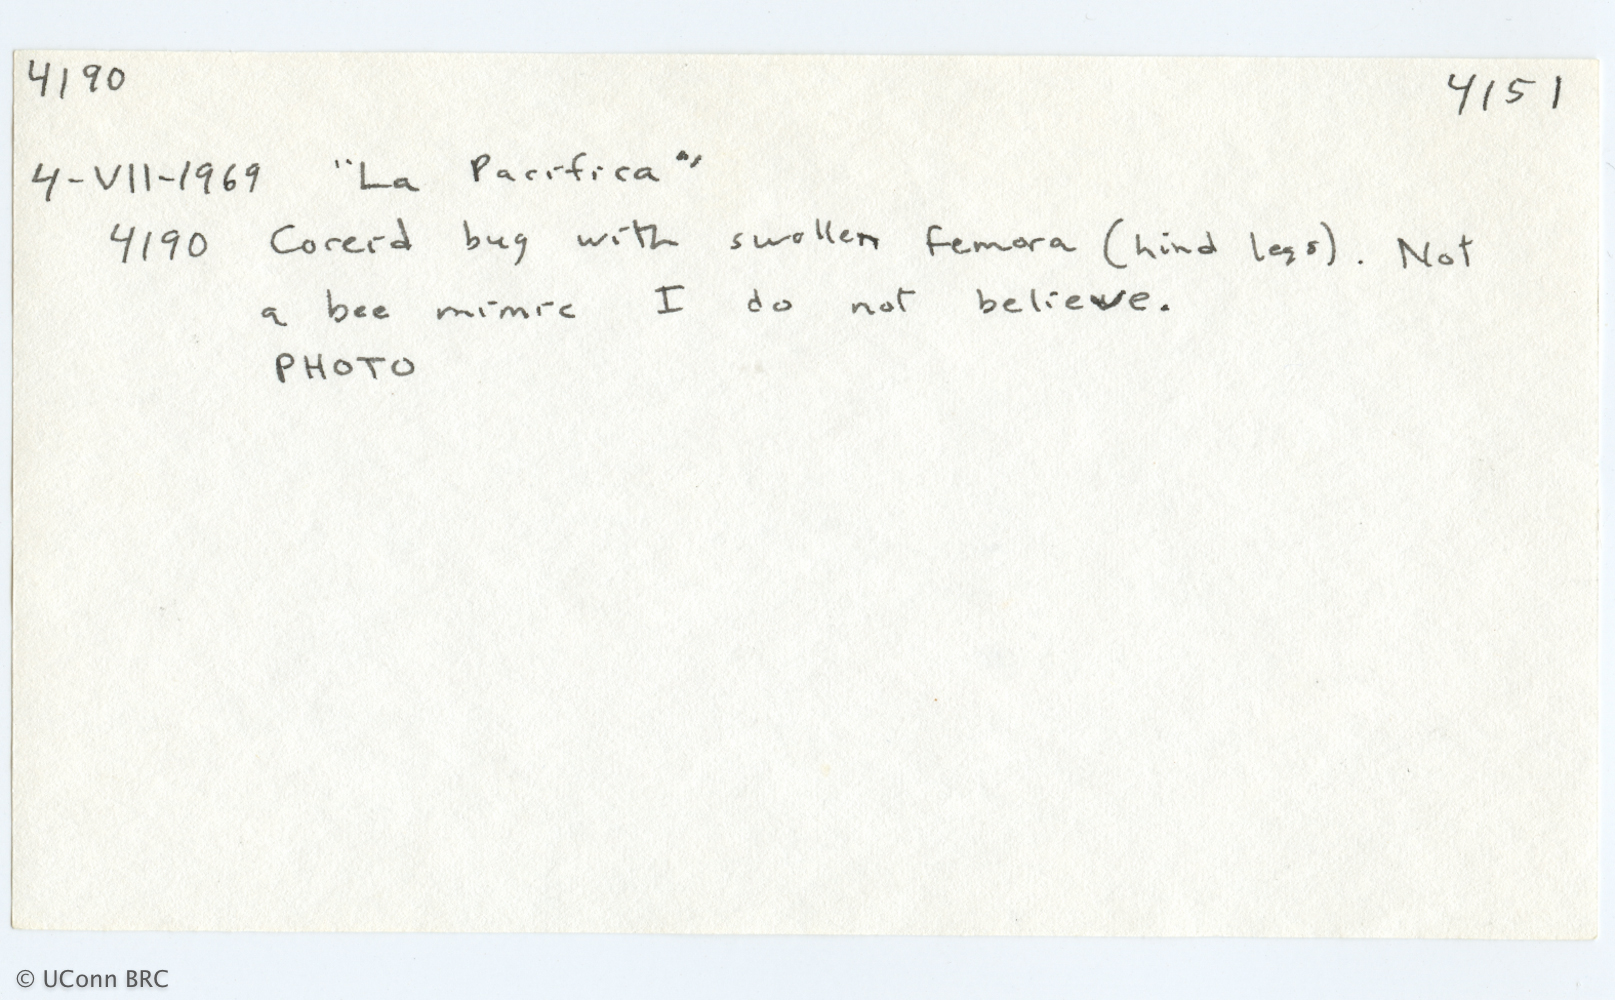 4190 4151
4-VII-1969 "La Pacifica"
4190 Coreid bug with swollen femora (hind legs). Not
a bee mimic I do not believe.
PHOTO
© UConn BRC